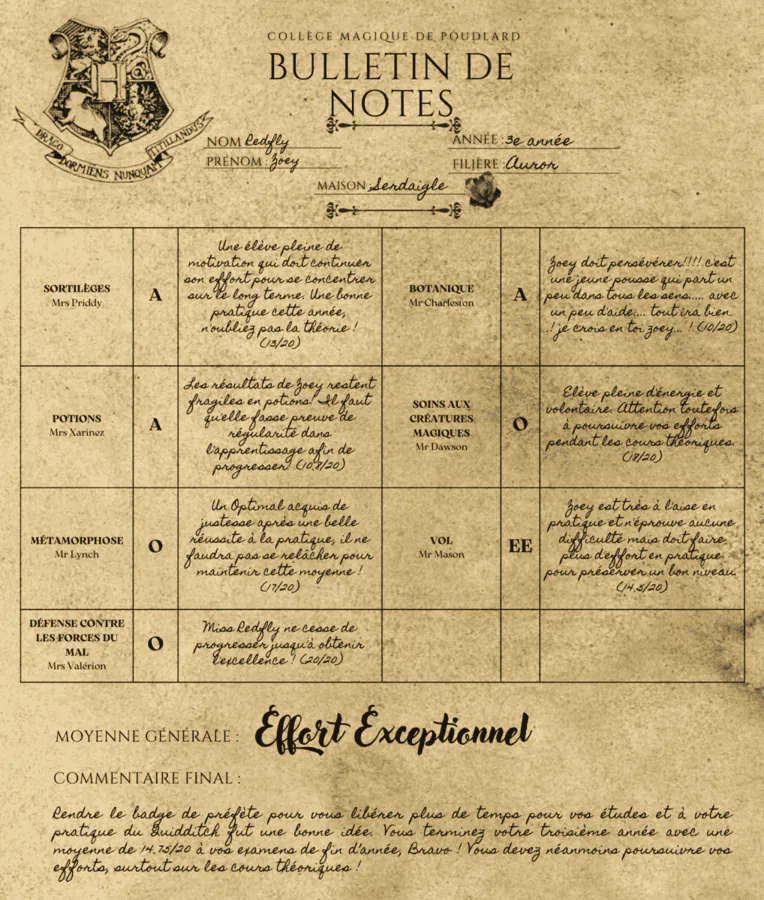 COLLÈGE MAGIQUE DE POUDLARD
BULLETIN DE
NOTES
DRACO
DORMIENS NUNQUAM
TITILLANDUS
NOM Redfly
PRÉNOM : Zoey
ANNÉE : 3e année
FILIÈRE : Auror
MAISON Serdaigle
SORTILÈGES
Mrs Priddy
A
Une élève pleine de
motivation qui doit continuer
son effort pour se concentrer
sur le long terme. Une bonne
pratique cette année,
n'oubliez pas la théorie !
(13/20)
BOTANIQUE
Mr Charleston
A
Zoey doit persévérer!!!! c'est
une jeune pousse qui part un
peu dans tous les sens..... avec
un peu d'aide.... tout ira bien
..! je crois en toi Zoey... ! (10/20)
POTIONS
Mrs Xarinez
A
Les résultats de Zoey restent
fragiles en potions! Il faut
qu'elle fasse preuve de
régularité dans
l'apprentissage afin de
progresser! (10.7/20)
SOINS AUX
CRÉATURES
MAGIQUES
Mr Dawson
O
Elève pleine d'énergie et
volontaire. Attention toutefois
à poursuivre vos efforts
pendant les cours théoriques.
(18/20)
MÉTAMORPHOSE
Mr Lynch
O
Un Optimal acquis de
justesse après une belle
réussite à la pratique, il ne
faudra pas se relâcher pour
maintenir cette moyenne !
(17/20)
VOL
Mr Mason
EE
Zoey est très à l'aise en
pratique et n'éprouve aucune
difficulté mais doit faire
plus d'effort en pratique
pour préserver un bon niveau.
(14.5/20)
DÉFENSE CONTRE
LES FORCES DU
MAL
Mrs Valérion
O
Miss Redfly ne cesse de
progresser jusqu'à obtenir
l'excellence ! (20/20)
MOYENNE GÉNÉRALE : Effort Exceptionnel
COMMENTAIRE FINAL :
Rendre le badge de préfète pour vous libérer plus de temps pour vos études et à votre
pratique du Quidditch fut une bonne idée. Vous terminez votre troisième année avec une
moyenne de 14.75/20 à vos examens de fin d'année, Bravo ! Vous devez néanmoins poursuivre vos
efforts, surtout sur les cours théoriques !